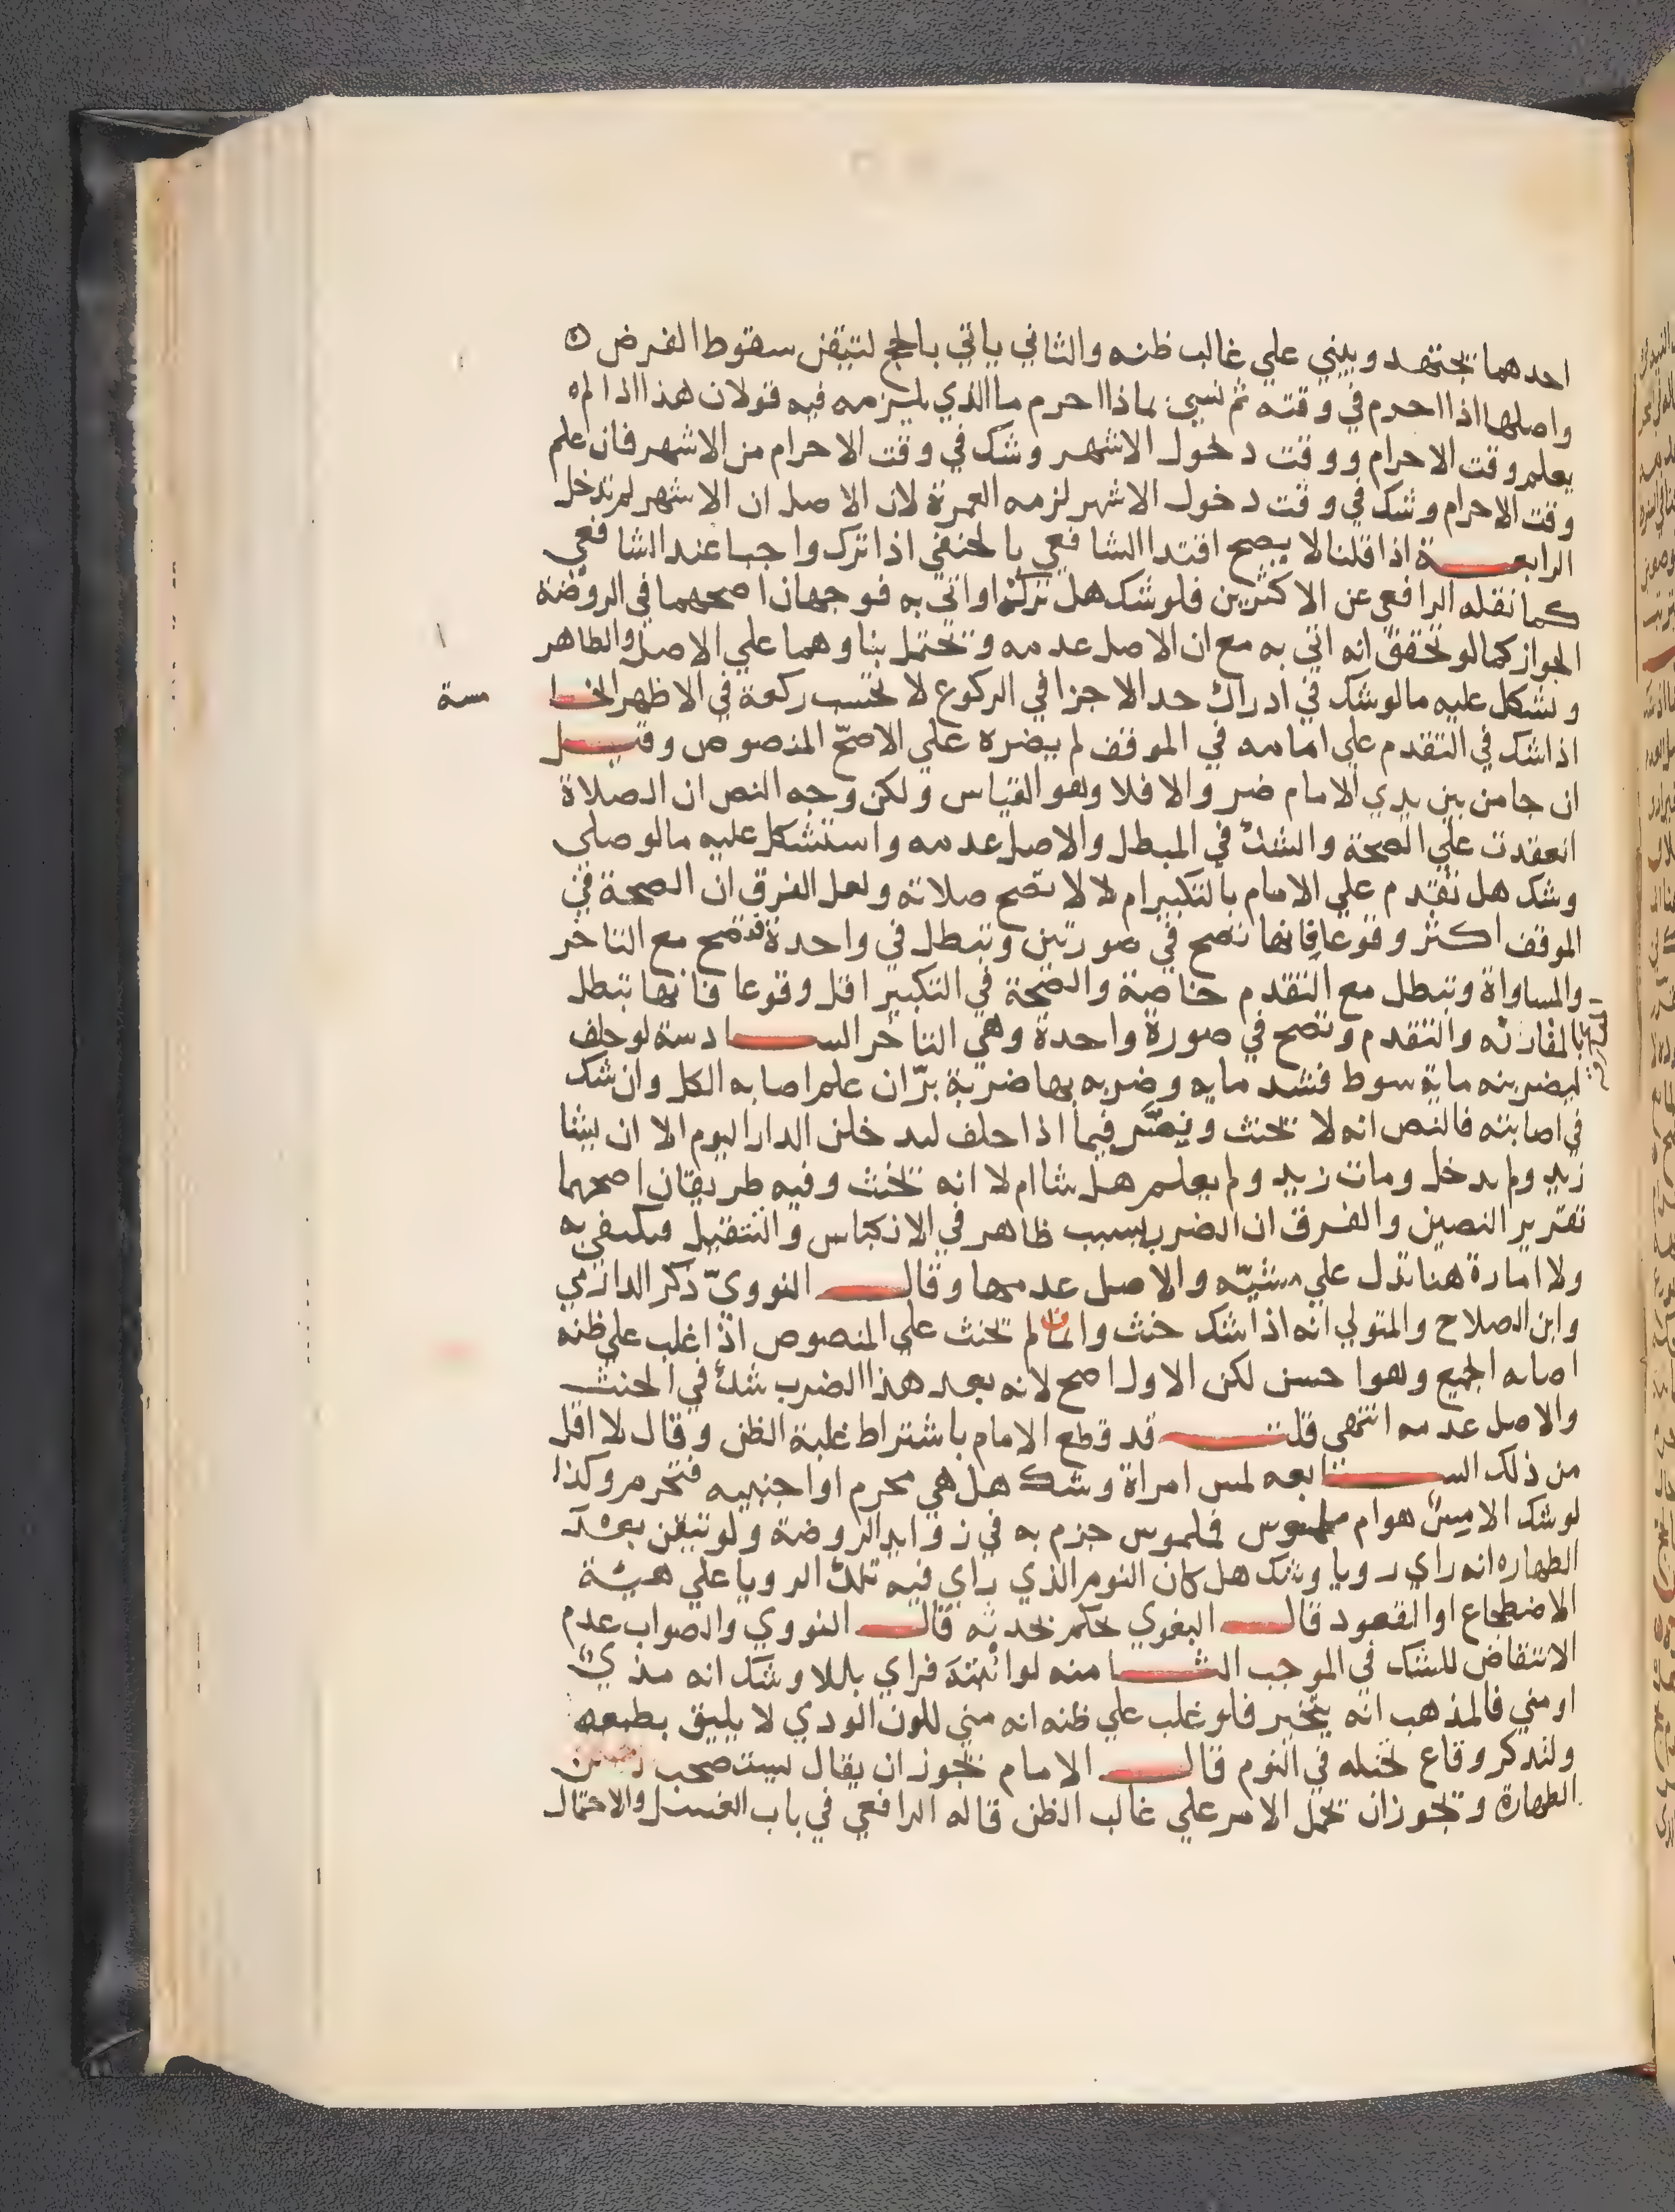 احدهما يجتهد ويبني علي غالب ظنه والثاني ياتي بالحج لتيقن سقوط الفرض
واصلها اذا احرم في وقته ثم نسي بماذا احرم ما الذي يلزمه فيه قولان هذا اذا لم
يعلم وقت الاحرام ووقت دخول الاشهر وشك في وقت الاحرام من الاشهر فان علم
وقت الاحرام وشك في وقت دخول الاشهر لزمه العمرة لان الاصل ان الاشهر لم تدخل
الرابعة اذا قلنا لا يصح اقتدا الشافعي بالحنفي اذا ترك واجبا عند الشافعي
كما نقله الرافعي عن الاكثرين فلو شك هل تركه او اتي به فوجهان اصحهما في الروضة
الجواز كما لو تحقق انه اتي به مع ان الاصل عدمه ويحتمل بناوهما علي الاصل والظاهر
ويشكل عليه ما لو شك في ادراك حد الاجزا في الركوع لا تحسب ركعة في الاظهر الخا
مسة
اذا شك في التقدم علي امامه في الموقف لم يضره علي الاصح المنصوص وقيل
ان جا من بين يدي الامام ضر والا فلا وهو القياس ولكن وجه النص ان الصلاة
انعقدت علي الصحة والشك في المبطل والاصل عدمه واستشكل عليه ما لو صلي
وشك هل تقدم علي الامام بالتكبير ام لا لا تصح صلاته ولعل الفرق ان الصحة في
الموقف اكثر وقوعا فانها تصح في صورتين وتبطل في واحدة فتصح مع التاخر
والمساواة وتبطل مع التقدم خاصة والصحة في التكبير اقل وقوعا فانها تبطل
بالمقارنه والتقدم وتصح في صورة واحدة وهي التاخر السادسة لو حلف
ليضربنه ماية سوط فشد مايه وضربه بها ضربة بر ان علم اصابه الكل وان شك
في اصابته فالنص انه لا يحنث ونص فيما اذا حلف ليدخلن الدار اليوم الا ان يشا
زيد ولم يدخل ومات زيد ولم يعلم هل شا ام لا انه يحنث وفيه طريقان اصحهما
تقرير النصين والفرق ان الضرب سبب ظاهر في الانكباس والتثقيل فيكتفي به
ولا امارة هنا تدل علي مشيته والاصل عدمها وقال النووي ذكر الدارمي
وابن الصلاح والمتولي انه اذا شك حنث وانما لم يحنث علي المنصوص اذا غلب علي ظنه
اصابه الجميع وهوا حسن لكن الاول اصح لانه بعد هذا الضرب شك في الحنث
والاصل عدمه انتهي قلت قد قطع الامام باشتراط غلبة الظن وقال لا اقل
من ذلك السابعه لمس امراة وشك هل هي محرم او اجنبيه فتحرم وكذا
لو شك الامس هو ام ملموس فملموس جزم به في زوايد الروضة ولو تيقن بعد
الطهاره انه راي رويا وشك هل كان النوم الذي راي فيه تلك الرويا علي هيئة
الاضطجاع او القعود قال البغوي يحكم بحدثه قال النووي والصواب عدم
الانتقاض للشك في الموجب الثامنه لو انتبه فراي بللا وشك انه مذي
او مني فالمذهب انه يتخير فلو غلب علي ظنه انه مني للون الودي لا يليق بطبعه
ولتذكر وقاع تخيله في النوم قال الامام يجوز ان يقال يستصحب
الطهارة ويجوز ان يحمل الامر علي غالب الظن قاله الرافعي في باب الغسل والاحتمال